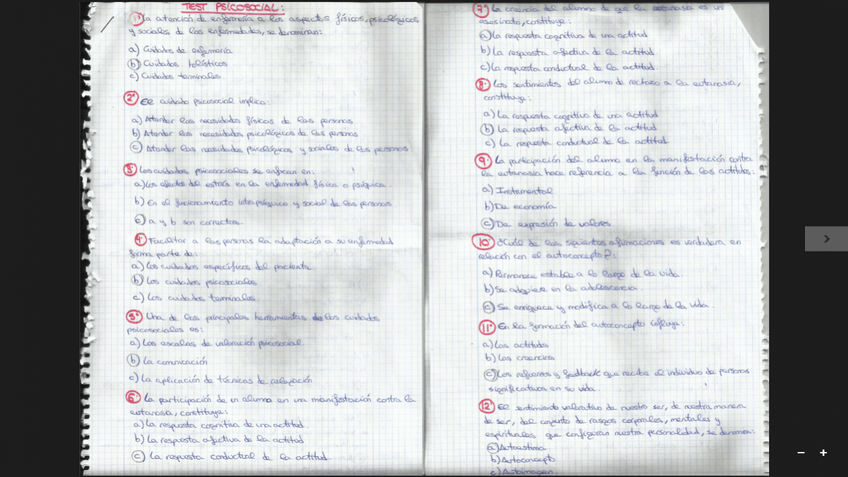 TEST PSICOSOCIAL:
1º La atención de enfermería a los aspectos físicos, psicológicos
y sociales de las enfermedades, se denominan:
a) Cuidados de enfermería
b) Cuidados holísticos
c) Cuidados terminales
2º El cuidado psicosocial implica:
a) Atender las necesidades físicas de las personas
b) Atender las necesidades psicológicas de las personas
c) Atender las necesidades psicológicas y sociales de las personas
3º Los cuidados psicosociales se enfocan en:
a) Los efectos del estrés en la enfermedad física o psíquica
b) En el funcionamiento intrapsíquico y social de las personas
c) a y b son correctas.
4º Facilitar a las personas la adaptación a su enfermedad
forma parte de:
a) Los cuidados específicos del paciente
b) Los cuidados psicosociales
c) Los cuidados terminales
5º Una de las principales herramientas de los cuidados
psicosociales es:
a) Las escalas de valoración psicosocial
b) La comunicación
c) La aplicación de técnicas de relajación
6º La participación de un alumno en una manifestación contra la
eutanasia, constituye:
a) La respuesta cognitiva de una actitud
b) La respuesta afectiva de la actitud
c) La respuesta conductual de la actitud.
7º La creencia del alumno de que la eutanasia es un
asesinato, constituye:
a) La respuesta cognitiva de una actitud
b) La respuesta afectiva de la actitud
c) La respuesta conductual de la actitud.
8º Los sentimientos del alumno de rechazo a la eutanasia,
constituye:
a) La respuesta cognitiva de una actitud
b) La respuesta afectiva de la actitud
c) La respuesta conductual de la actitud.
9º La participación del alumno en la manifestación contra
la eutanasia hace referencia a la función de las actitudes:
a) Instrumental
b) De economía
c) De expresión de valores
10º ¿Cuál de las siguientes afirmaciones es verdadera en
relación con el autoconcepto?:
a) Permanece estable a lo largo de la vida
b) Se adquiere en la adolescencia.
c) Se enriquece y modifica a lo largo de la vida.
11º En la formación del autoconcepto influye:
a) Las actitudes
b) Las creencias
c) Los refuerzos y feedback que recibe el individuo de personas
significativas en su vida.
12º El sentimiento valorativo de nuestro ser, de nuestra manera
de ser, del conjunto de rasgos corporales, mentales y
espirituales que configuran nuestra personalidad, se denomina:
a) Autoestima
b) Autoconcepto
c) Autoimagen